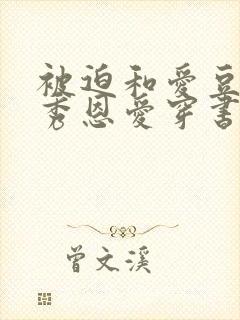 被迫和愛豆
秀恩愛穿書
曾文溪